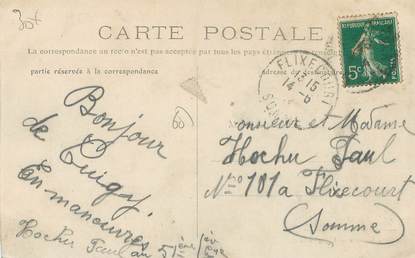 30x
CARTE POSTALE
La correspondance au recto n'est pas acceptée par tous les pays étrangers
partie réservée à la correspondance
adresse
REPUBLIQUE FRANÇAISE
5c
POSTES
FLIXECOURT
13 15
14 - 6
80
Bonjour
de
En manoeuvres
Hochu Paul au 5
Monsieur et Madame
Hochu Paul
N° 101a Flixecourt
Somme